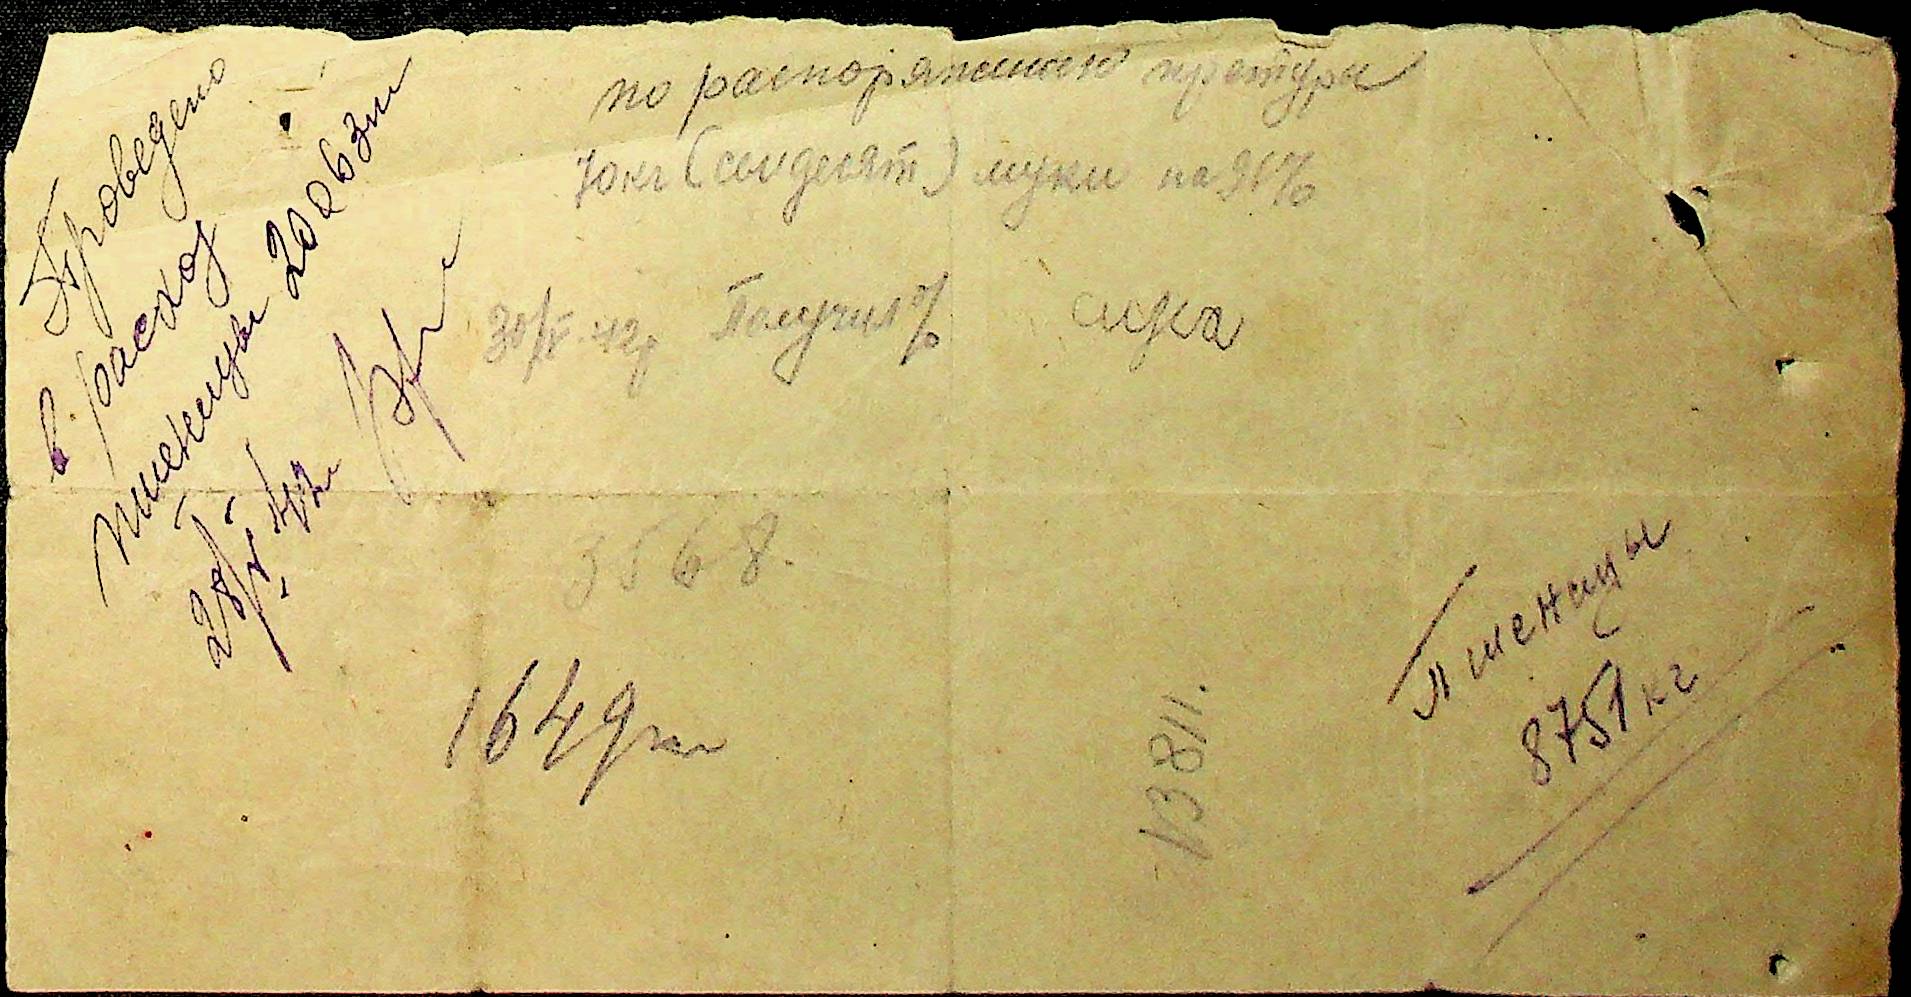 Проведено
в расход
пшеницы
28/V 42г
по распоряжению претуры
70 кг (семдесят) муки на 91%
30/V-42г Получил
3568.
1649 кг
13811.
Пшеницы
8751 кг